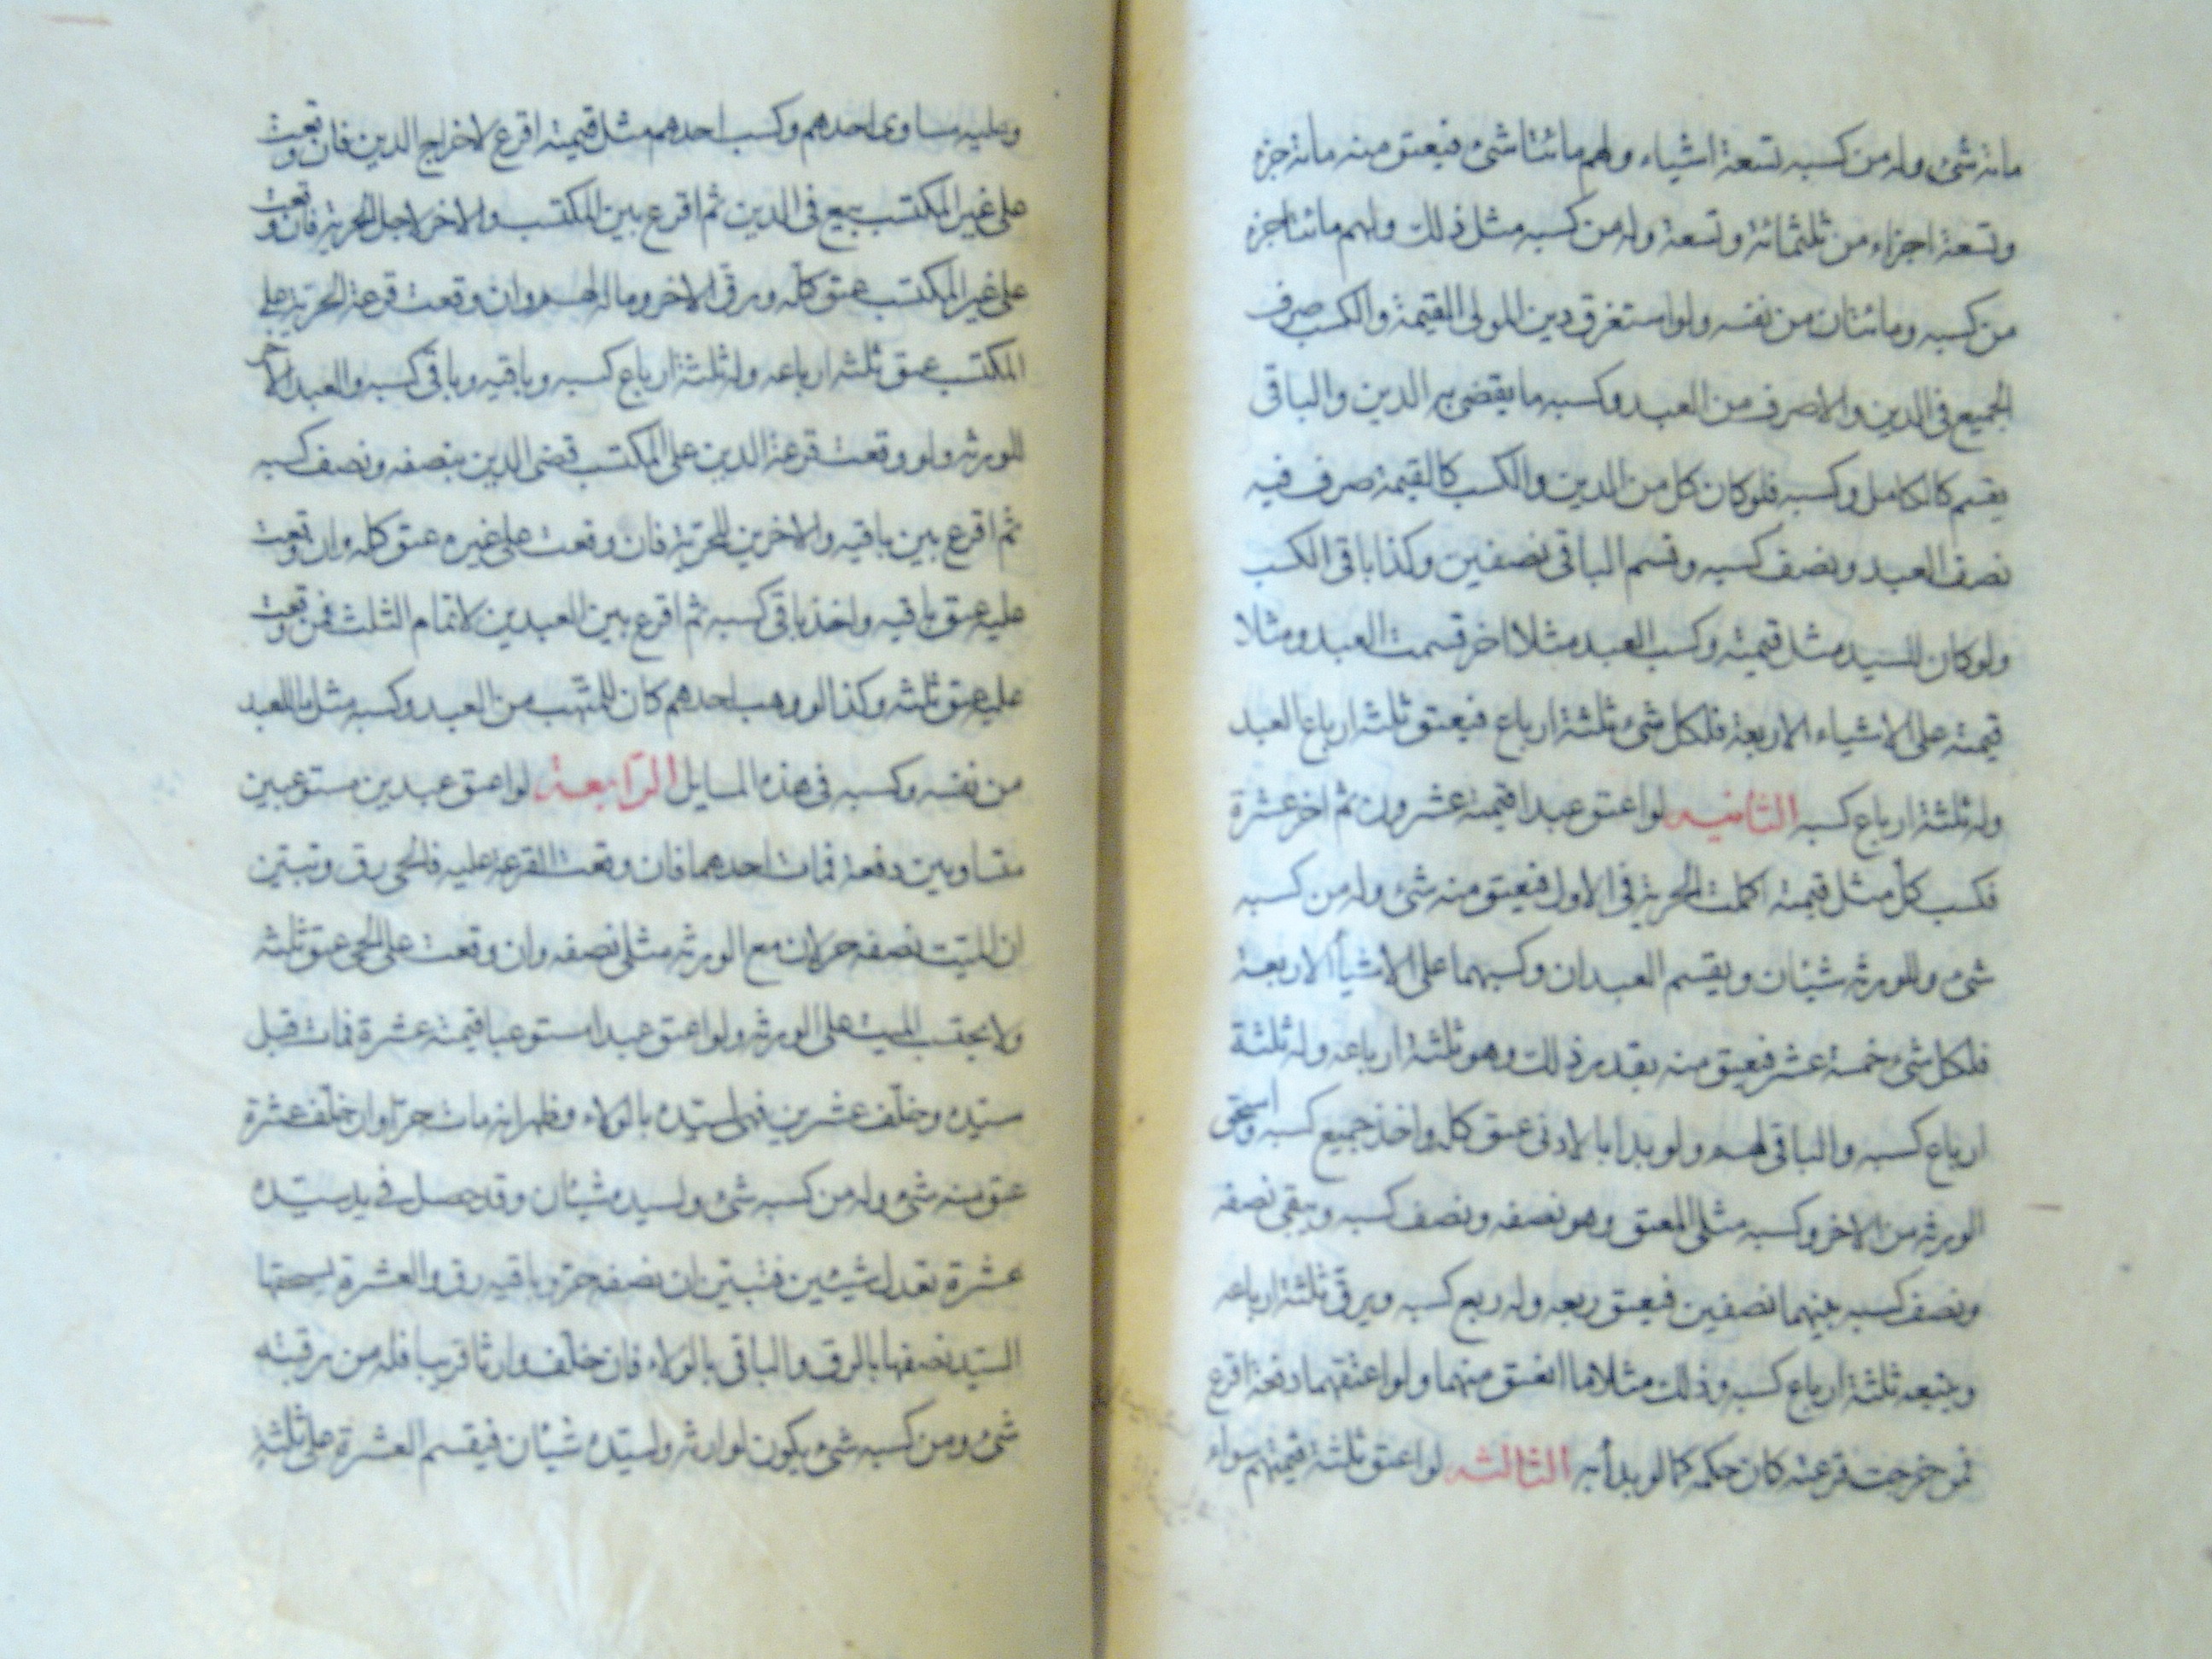 مائة شئ وله من كسبه تسعة اشياء ولهم مائتا شئ فيعتق منه مائة جزء
وتسعة اجزاء من ثلثمائة وتسعة وله من كسبه مثل ذلك ولهم مائتا جزء
من كسبه ومائتان من نفسه ولو استغرق دين المولى القيمة والكسب صرف
الجميع في الدين والا صرف من العبد وكسبه ما يقضى به الدين والباقى
يقسم كالكامل وكسبه فلو كان كل من الدين والكسب كالقيمة صرف فيه
نصف العبد ونصف كسبه وقسم الباقى نصفين وكذا باقى الكسب
ولو كان للسيد مثل قيمته وكسب العبد مثلا اخر قسمت العبد ومثلا
قيمته على الاشياء الاربعة فلكل شئ ثلثة ارباع فيعتق ثلثة ارباع العبد
وله ثلثة ارباع كسبه الثانيه لو اعتق عبدا قيمته عشرون ثم اخر عشرة
فكسب كل مثل قيمته اكملت الحرية في الاول فيعتق منه شئ وله من كسبه
شئ وللورثه شيئان ويقسم العبدان وكسبهما على الاشيأ الاربعة
فلكل شئ خمسة عشر فيعتق منه بقدر ذلك وهو ثلثة ارباعه وله ثلثة
ارباع كسبه والباقى لهم ولو بدا بالادنى عتق كله واخذ جميع كسبه واستحق
الورثه من الاخر وكسبه مثلى المعتق وهو نصفه ونصف كسبه ويبقى نصفه
ونصف كسبه بينهما نصفين فيعتق ربعه وله ربع كسبه ويرق ثلثة ارباعه
ويتبعه ثلثة ارباع كسبه وذلك مثلا ما انعتق منهما ولو اعتقهما دفعة اقرع
فمن خرجت قرعته كان حكمه كما لو بدأ به الثالثه لو اعتق ثلثة قيمتهم سواء
وعليه مساوى احدهم وكسب احدهم مثل قيمته اقرع لاخراج الدين فان وقعت
على غير المكتسب بيع في الدين ثم اقرع بين المكتسب والاخر لاجل الحرية فان وقعت
على غير المكتسب عتق كله ورق الاخر وماله لهم وان وقعت قرعة الحرية على
المكتسب عتق ثلثة ارباعه وله ثلثة ارباع كسبه وباقيه وباقى كسبه والعبد الاخر
للورثه ولو وقعت قرعة الدين على المكتسب قضى الدين بنصفه ونصف كسبه
ثم اقرع بين باقيه والاخرين للحرية فان وقعت على غيره عتق كله وان وقعت
عليه عتق باقيه واخذ باقى كسبه ثم اقرع بين العبدين لاتمام الثلث فمن وقعت
عليه عتق ثلثه وكذا لو وهب احدهم كان للمتهب من العبد وكسبه مثل ما للعبد
من نفسه وكسبه في هذه المسايل الرابعة لو اعتق عبدين مستوعبين
متساويين دفعة فمات احدهما فان وقعت القرعة عليه فالحى رق وتبين
ان الميت نصفه حر لان مع الورثه مثلى نصفه وان وقعت على الحى عتق ثلثه
ولا يحتسب الميت على الورثه ولو اعتق عبدا مستوعبا قيمته عشرة فمات قبل
سيده وخلف عشرين فهى لسيده بالولاء وظهر انه مات حرا وان خلف عشرة
عتق منه شئ وله من كسبه شئ ولسيده شيئان وقد حصل في يد سيده
عشرة تعدل شيئين فتبين ان نصفه حر وباقيه رق والعشرة يستحقها
السيد نصفها بالرق والباقى بالولاء فان خلف وارثا قريبا فله من رقبته
شئ ومن كسبه شئ يكون لوارثه ولسيده شيئان فيقسم العشرة على ثلثة